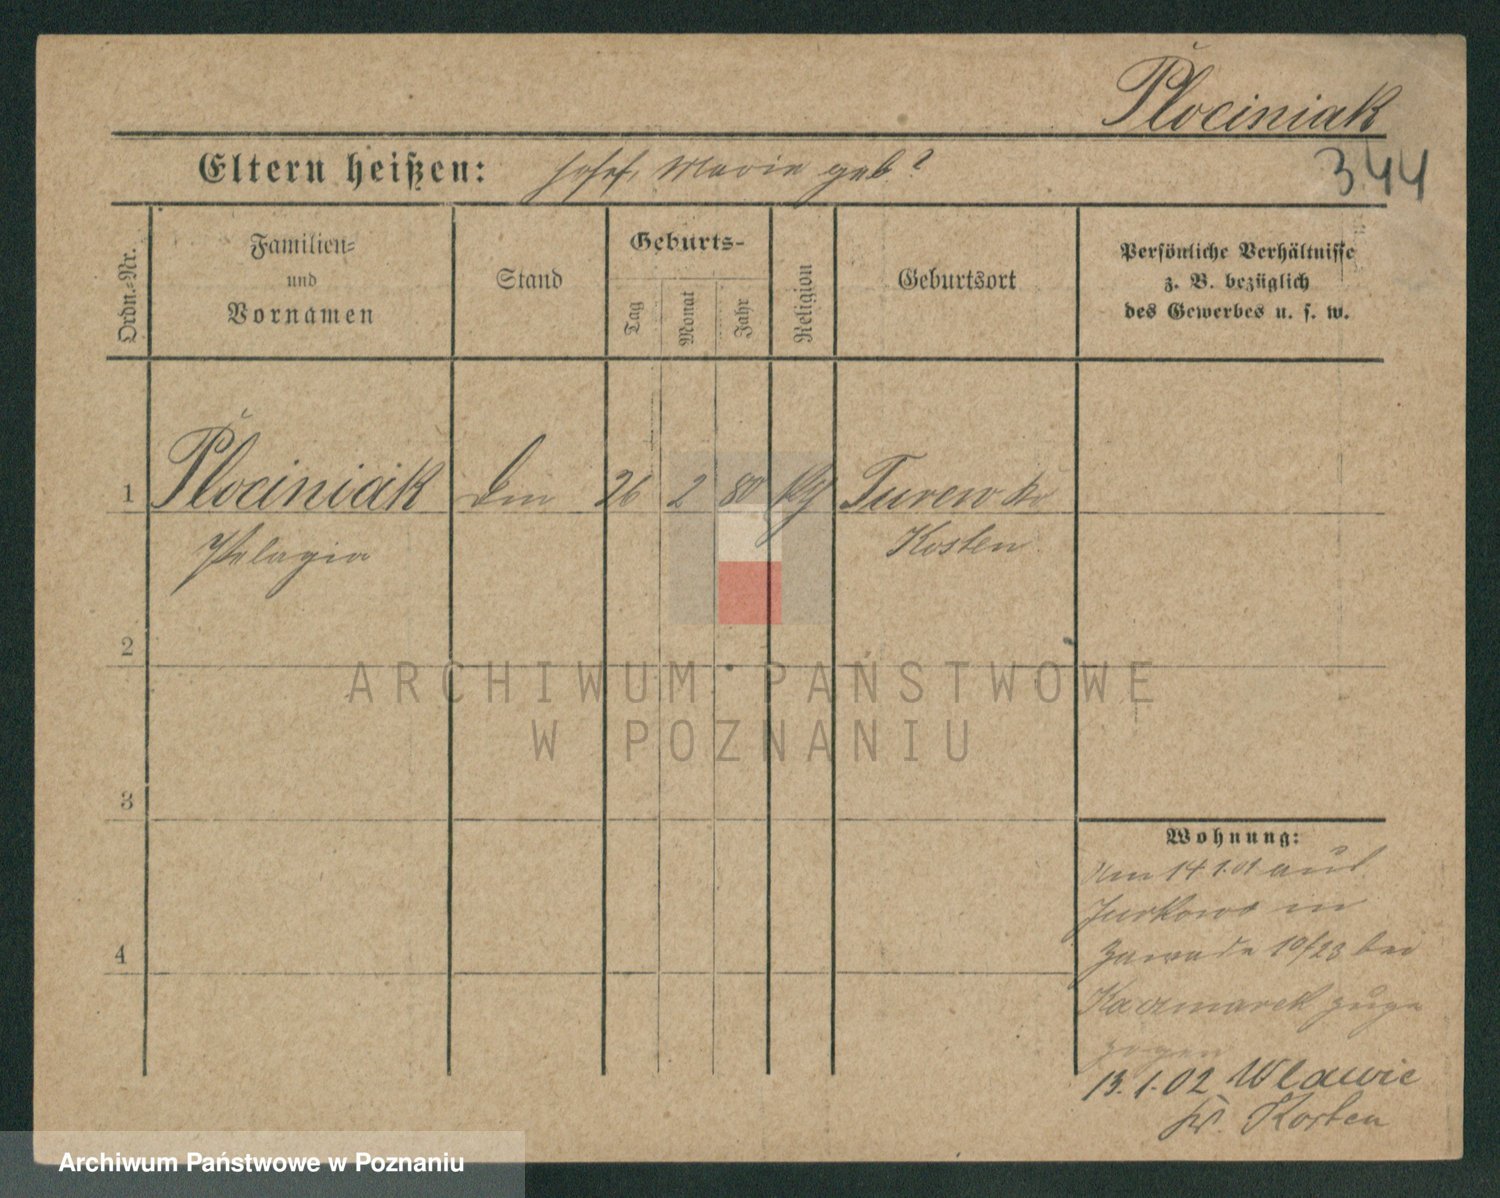 Płociniak
344
Eltern heißen: Josef, Marie geb ?
Ordn.-Nr.
Familien-
und
Vornamen
Stand
Geburts-
Tag
Monat
Jahr
Religion
Geburtsort
Persönliche Verhältnisse
z. B. bezüglich
des Gewerbes u. s. w.
1 Płociniak 26 2 80 Turew Kr
Pelagia Kosten
2
ARCHIWUM PAŃSTWOWE
W POZNANIU
3
Wohnung:
Am 14 1. 01 aus
Jurkowo in
4
Zawade 10/23 bei
Kaczmarek zuge
zogen
13. 1. 02
Kr. Kosten
Archiwum Państwowe w Poznaniu